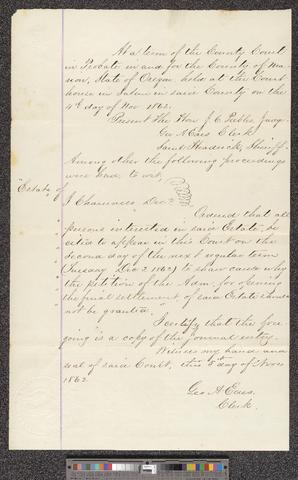 At a term of the County Court
in Probate in and for the County of Ma
rion, State of Oregon, held at the Court
house in Salem in said County on the
4th day of Nov 1862.
Present the Hon. J. C. Peebles, Judge
Geo A Edes Clerk
Saml Headrick, Sheriff
Among other the following proceedings
were had, to wit,
Estate of
J Dec'd
Ordered that all
persons interested in said Estate, be
cited to appear in this Court on the
second day of the next regular term
(Tuesday Dec 2 1862) to show cause why
the petition of the Adm. for opening
the final settlement of said Estate should
not be granted.
I certify that the fore
going is a copy of the journal entry.
Witness my hand and
seal of said Court, this 8 day of Nov
1862
Geo A Edes,
Clerk.